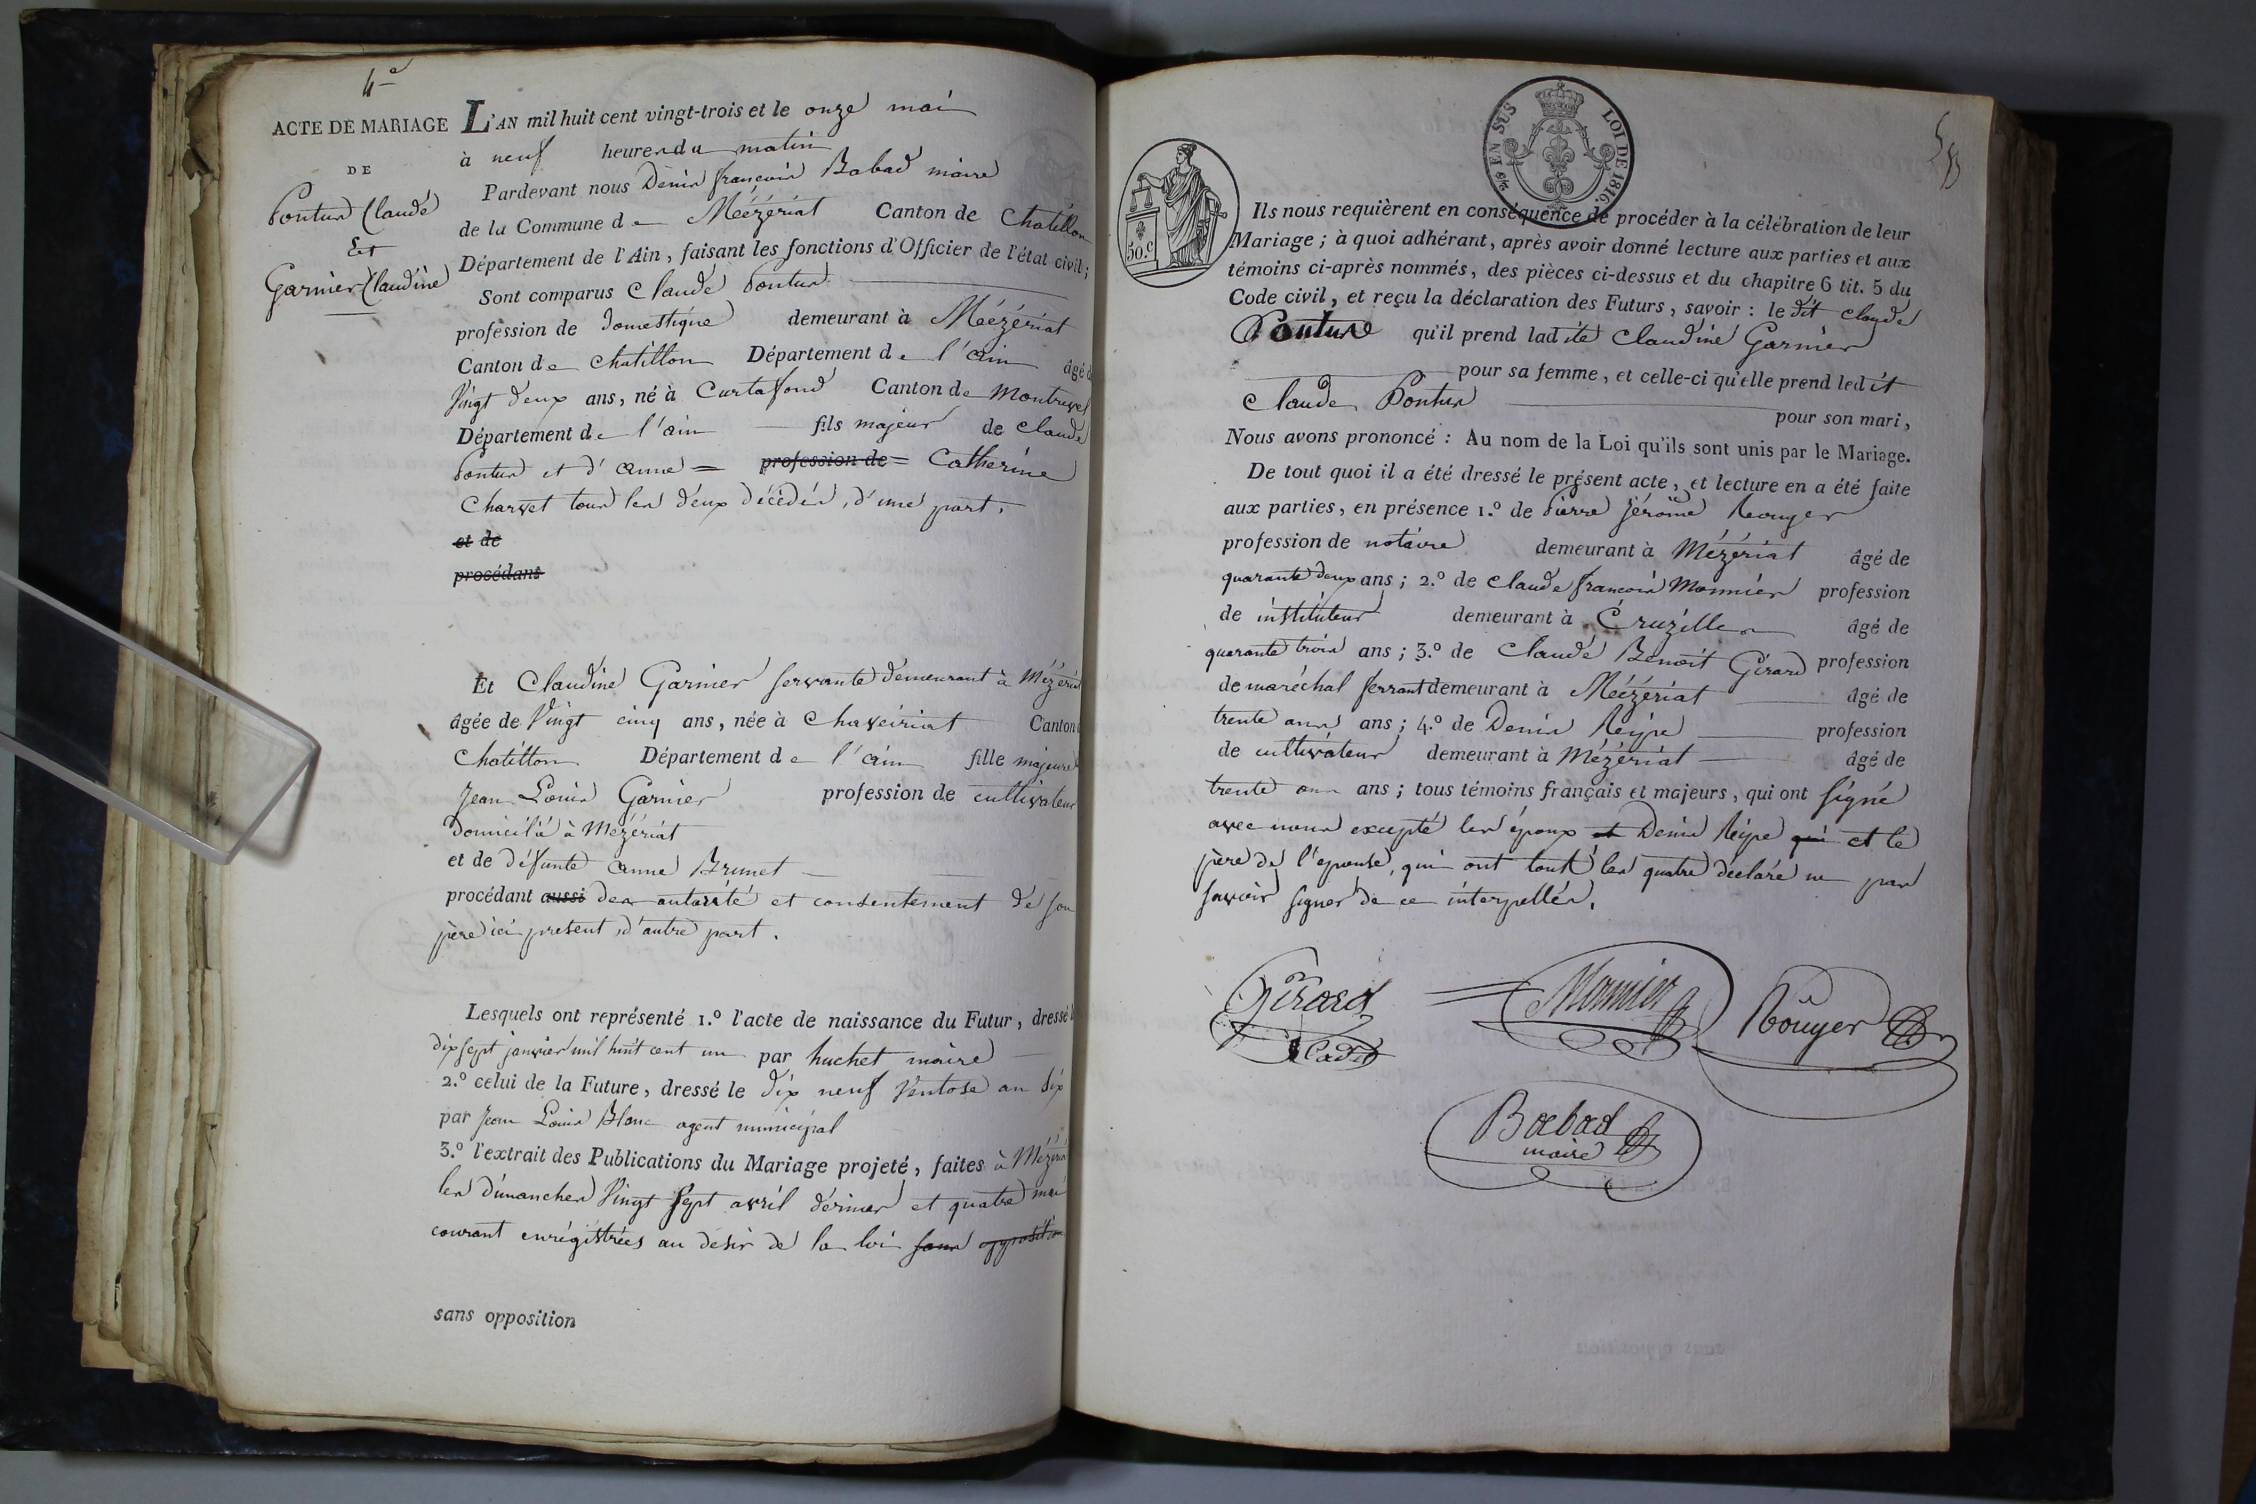 4e
ACTE DE MARIAGE
DE
Pontus Claude
Et
Garnier Claudine
L'AN mil huit cent vingt-trois et le onze mai
à neuf heures du matin
Pardevant nous Denis françois Babad maire
de la Commune de Méézériat Canton de Chatillon
Département de l'Ain, faisant les fonctions d'Officier de l'état civil;
Sont comparus Claude Pontus
profession de domestique demeurant à Méézériat
Canton de Chatillon Département de l'ain âgé d
Vingt deux ans, né à Curtafond Canton de Montrevel
Département de l'ain fils majeur de Claude
Pontus et d'anne = profession de = Catherine
Charvet tous les deux décédés, d'une part.
et de
procédant
Et Claudine Garnier servante demeurant à Mézériat
âgée de Vingt cinq ans, née à Chaveiriat Canton d
Chatillon Département de l'ain fille majeure
Jean Louis Garnier profession de cultivateur
domicilié à Mézériat
et de défunte anne Brunet
procédant aussi des autorité et consentement de son
père ici present, d'autre part.
Lesquels ont représenté 1.º l'acte de naissance du Futur, dressé l
dix sept janvier mil huit cent un par huchet maire
2.º celui de la Future, dressé le dix neuf Ventose an Six
par Jean Louis Blanc agent municipal
3.º l'extrait des Publications du Mariage projeté, faites à Mézériat
les dimanches Vingt Sept avril dérnier et quatre mai
courant enrégistrées au désir de la loi sans opposition
sans opposition
50.c
5/6 EN SUS
LOI DE 1816.
Ils nous requièrent en conséquence de procéder à la célébration de leur
Mariage; à quoi adhérant, après avoir donné lecture aux parties et aux
témoins ci-après nommés, des pièces ci-dessus et du chapitre 6 tit. 5 du
Code civil, et reçu la déclaration des Futurs, savoir: le dit claude
Pontus qu'il prend ladite Claudine Garnier
pour sa femme, et celle-ci qu'elle prend ledit
Claude Pontus pour son mari,
Nous avons prononcé: Au nom de la Loi qu'ils sont unis par le Mariage.
De tout quoi il a été dressé le présent acte, et lecture en a été faite
aux parties, en présence 1.º de Pierre Jérome Rouyer
profession de notaire demeurant à Mézériat âgé de
quarante deux ans; 2.º de Claude françois Monnier profession
de instituteur demeurant à Cruzilles âgé de
quarante trois ans; 3.º de Claude Benoit Girard profession
de maréchal ferrant demeurant à Méézériat âgé de
trente ans ans; 4.º de Denis Reype profession
de cultivateur demeurant à Mézériat âgé de
trente ans; tous témoins français et majeurs, qui ont Signé
avec nous excepté les époux et Denis Reype qui et le
père de l'épouse, qui ont tout les quatre déclaré ne pas
savoir signer de ce interpellés.
Girard
Cadet
Monnier
Rouyer
Babad
maire